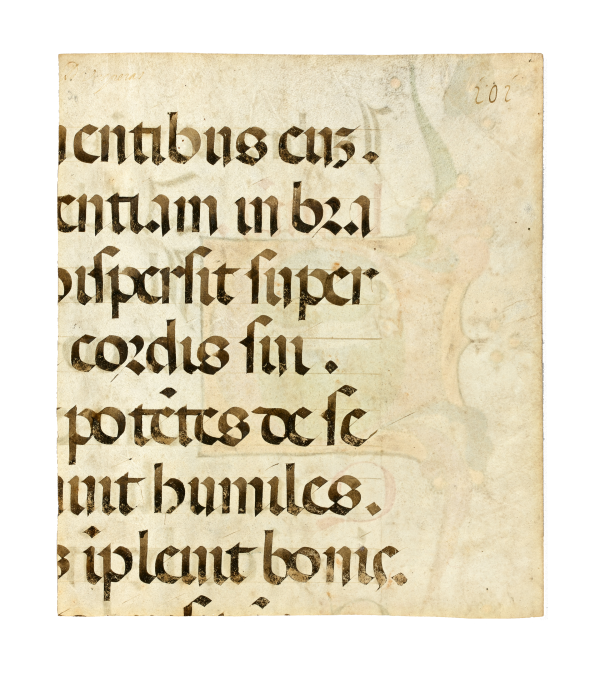 202
mentibus euʒ.
entiam in bra
dispersit super
cordis sui.
potētes de se
auit humiles.
s īpleuit bonis.